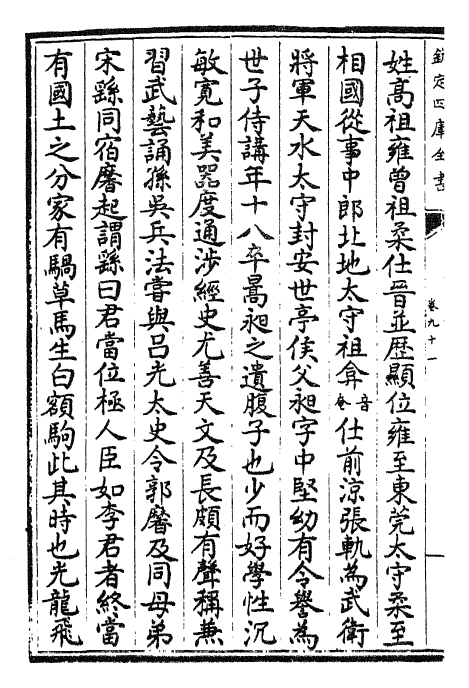 欽定四庫全書
卷九十一
姓高祖雍曾祖柔仕晉並歴顯位雍至東莞太守柔至
相國從事中郎北地太守祖弇音奄仕前涼張軌為武衛
將軍天水太守封安世亭侯父昶字中堅幼有令譽為
世子侍講年十八卒暠昶之遺腹子也少而好學性沉
敏寛和美器度通涉經史尤善天文及長頗有聲稱兼
習武藝誦孫吳兵法嘗與吕光太史令郭黁及同母弟
宋繇同宿黁起謂繇曰君當位極人臣如李君者終當
有國土之分家有騧草馬生白額駒此其時也光龍飛